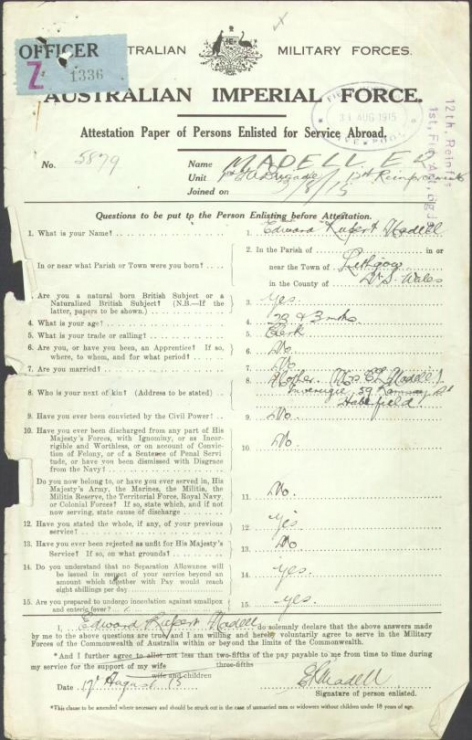 OFFICER
Z 1336
AUSTRALIAN MILITARY FORCES.
AUSTRALIAN IMPERIAL FORCE.
11 AUG 1915
12th Rein
Attestation Paper of Persons Enlisted for Service Abroad.
No. 5879
Name MADELL E R
Unit 12th Reinforcements
Joined on /8/15
Questions to be put to the Person Enlisting before Attestation.
1. What is your Name? 1. Edward Rupert Madell
In or near what Parish or Town were you born? 2. In the Parish of in or
near the Town of Lithgow
in the County of N. S. Wales
3. Are you a natural born British Subject or a
Naturalized British Subject? (N.B.—If the
latter, papers to be shown.) 3. Yes.
4. What is your age? 4.
5. What is your trade or calling? 5. Clerk
6. Are you, or have you been, an Apprentice? If so,
where, to whom, and for what period? 6. No.
7. Are you married? 7. No.
8. Who is your next of kin? (Address to be stated) 8. Mother. Mrs Madell
59 Ramsay St
Haberfield
9. Have you ever been convicted by the Civil Power? 9. No.
10. Have you ever been discharged from any part of His
Majesty's Forces, with Ignominy, or as Incor-
rigible and Worthless, or on account of Convict-
ion of Felony, or of a Sentence of Penal Servi-
tude, or have you been dismissed with Disgrace
from the Navy? 10. No.
Do you now belong to, or have you ever served in, His
Majesty's Army, the Marines, the Militia, the
Militia Reserve, the Territorial Force, Royal Navy,
or Colonial Forces? If so, state which, and if not
now serving, state cause of discharge 11. No.
12. Have you stated the whole, if any, of your previous
service? 12. Yes
13. Have you ever been rejected as unfit for His Majesty's
Service? If so, on what grounds? 13. No
14. Do you understand that no Separation Allowance will
be issued in respect of your service beyond an
amount which together with Pay would reach
eight shillings per day 14. Yes.
15. Are you prepared to undergo inoculation against smallpox
and enteric fever? 15. Yes.
I, Edward Rupert Madell do solemnly declare that the above answers made
by me to the above questions are true, and I am willing and hereby voluntarily agree to serve in the Military
Forces of the Commonwealth of Australia within or beyond the limits of the Commonwealth.
*And I further agree to allot not less than two-fifths of the pay payable to me from time to time during
three-fifths
my service for the support of my wife
wife and children
Date 17th August 15 E R Madell
Signature of person enlisted.
*This clause to be amended where necessary and should be struck out in the case of unmarried men or widowers without children under 18 years of age.